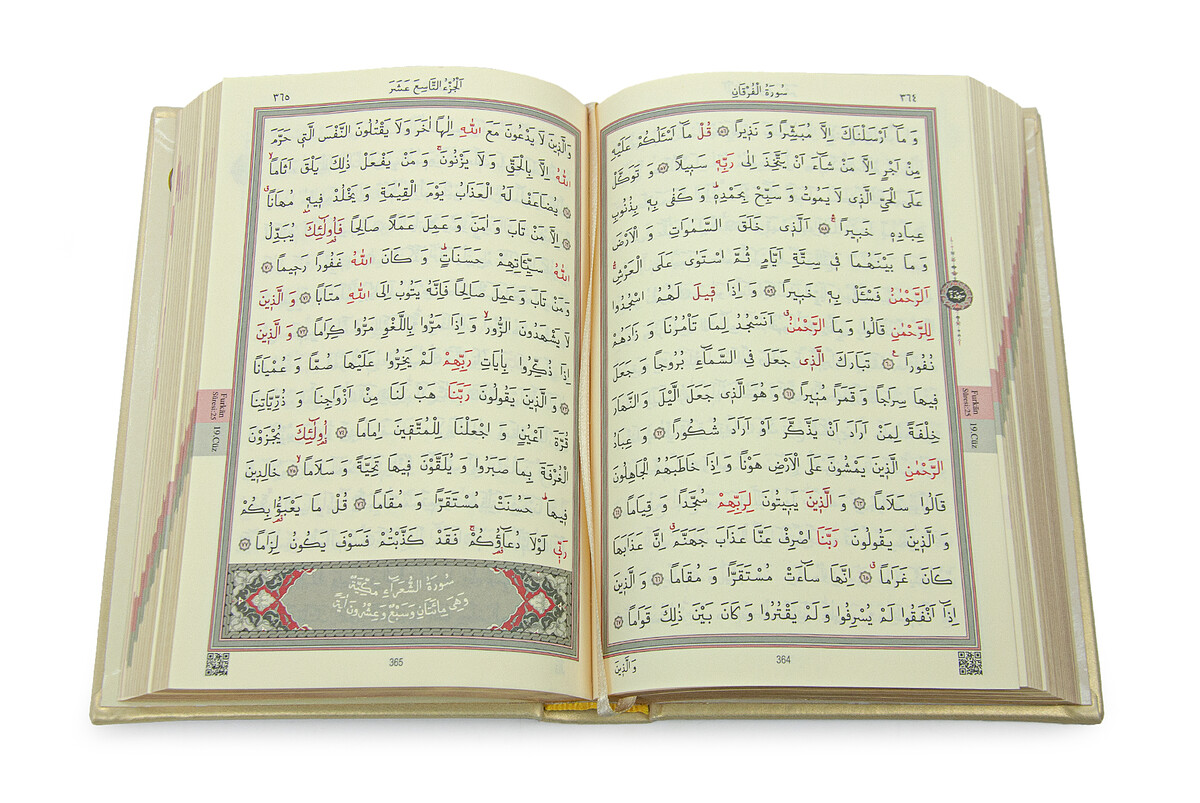 ٣٦٤
سُورَةُ الْفُرْقَانِ
وَمَٓا اَرْسَلْنَاكَ اِلَّا مُبَشِّرًا وَنَذٖيرًا ﴿٥٦﴾ قُلْ مَٓا اَسْـَٔلُكُمْ عَلَيْهِ
مِنْ اَجْرٍ اِلَّا مَنْ شَٓاءَ اَنْ يَتَّخِذَ اِلٰى رَبِّهٖ سَبٖيلًا ﴿٥٧﴾ وَتَوَكَّلْ
عَلَى الْحَيِّ الَّذٖي لَا يَمُوتُ وَسَبِّحْ بِحَمْدِهٖؕ وَكَفٰى بِهٖ بِذُنُوبِ
عِبَادِهٖ خَبٖيرًاۚ ﴿٥٨﴾ اَلَّذٖي خَلَقَ السَّمٰوَاتِ وَالْاَرْضَ
وَمَا بَيْنَهُمَا فٖي سِتَّةِ اَيَّامٍ ثُمَّ اسْتَوٰى عَلَى الْعَرْشِۚ
اَلرَّحْمٰنُ فَسْـَٔلْ بِهٖ خَبٖيرًا ﴿٥٩﴾ وَاِذَا قٖيلَ لَهُمُ اسْجُدُوا
لِلرَّحْمٰنِ قَالُوا وَمَا الرَّحْمٰنُۗ اَنَسْجُدُ لِمَا تَأْمُرُنَا وَزَادَهُمْ
نُفُورًا ﴿٦٠﴾ تَبَارَكَ الَّذٖي جَعَلَ فِي السَّمَٓاءِ بُرُوجًا وَجَعَلَ
فٖيهَا سِرَاجًا وَقَمَرًا مُنٖيرًا ﴿٦١﴾ وَهُوَ الَّذٖي جَعَلَ الَّيْلَ وَالنَّهَارَ
خِلْفَةً لِمَنْ اَرَادَ اَنْ يَذَّكَّرَ اَوْ اَرَادَ شُكُورًا ﴿٦٢﴾ وَعِبَادُ
الرَّحْمٰنِ الَّذٖينَ يَمْشُونَ عَلَى الْاَرْضِ هَوْنًا وَاِذَا خَاطَبَهُمُ الْجَاهِلُونَ
قَالُوا سَلَامًا ﴿٦٣﴾ وَالَّذٖينَ يَبٖيتُونَ لِرَبِّهِمْ سُجَّدًا وَقِيَامًا ﴿٦٤﴾
وَالَّذٖينَ يَقُولُونَ رَبَّنَا اصْرِفْ عَنَّا عَذَابَ جَهَنَّمَۗ اِنَّ عَذَابَهَا
كَانَ غَرَامًاۗ ﴿٦٥﴾ اِنَّهَا سَٓاءَتْ مُسْتَقَرًّا وَمُقَامًا ﴿٦٦﴾ وَالَّذٖينَ
اِذَٓا اَنْفَقُوا لَمْ يُسْرِفُوا وَلَمْ يَقْتُرُوا وَكَانَ بَيْنَ ذٰلِكَ قَوَامًا ﴿٦٧﴾
وَالَّذٖينَ
364
سَجْدَة
Furkân Sûresi:25
19 Cüz
اَلْجُزْءُ التَّاسِعَ عَشَرَ
٣٦٥
وَالَّذٖينَ لَا يَدْعُونَ مَعَ اللّٰهِ اِلٰهًا اٰخَرَ وَلَا يَقْتُلُونَ النَّفْسَ الَّتٖي حَرَّمَ
اللّٰهُ اِلَّا بِالْحَقِّ وَلَا يَزْنُونَۚ وَمَنْ يَفْعَلْ ذٰلِكَ يَلْقَ اَثَامًاۙ
﴿٦٨﴾ يُضَاعَفْ لَهُ الْعَذَابُ يَوْمَ الْقِيٰمَةِ وَيَخْلُدْ فٖيهٖ مُهَانًاۗ
﴿٦٩﴾ اِلَّا مَنْ تَابَ وَاٰمَنَ وَعَمِلَ عَمَلًا صَالِحًا فَاُو۬لٰٓئِكَ يُبَدِّلُ
اللّٰهُ سَيِّـَٔاتِهِمْ حَسَنَاتٍؕ وَكَانَ اللّٰهُ غَفُورًا رَحٖيمًا ﴿٧٠﴾
وَمَنْ تَابَ وَعَمِلَ صَالِحًا فَاِنَّهُ يَتُوبُ اِلَى اللّٰهِ مَتَابًا ﴿٧١﴾ وَالَّذٖينَ
لَا يَشْهَدُونَ الزُّورَۙ وَاِذَا مَرُّوا بِاللَّغْوِ مَرُّوا كِرَامًا ﴿٧٢﴾ وَالَّذٖينَ
اِذَا ذُكِّرُوا بِاٰيَاتِ رَبِّهِمْ لَمْ يَخِرُّوا عَلَيْهَا صُمًّا وَعُمْيَانًا
﴿٧٣﴾ وَالَّذٖينَ يَقُولُونَ رَبَّنَا هَبْ لَنَا مِنْ اَزْوَاجِنَا وَذُرِّيَّاتِنَا
قُرَّةَ اَعْيُنٍ وَاجْعَلْنَا لِلْمُتَّقٖينَ اِمَامًا ﴿٧٤﴾ اُو۬لٰٓئِكَ يُجْزَوْنَ
الْغُرْفَةَ بِمَا صَبَرُوا وَيُلَقَّوْنَ فٖيهَا تَحِيَّةً وَسَلَامًاۙ ﴿٧٥﴾ خَالِدٖينَ
فٖيهَاؕ حَسُنَتْ مُسْتَقَرًّا وَمُقَامًا ﴿٧٦﴾ قُلْ مَا يَعْبَؤُ۬ا بِكُمْ
رَبّٖي لَوْلَا دُعَٓاؤُ۬كُمْۚ فَقَدْ كَذَّبْتُمْ فَسَوْفَ يَكُونُ لِزَامًا ﴿٧٧﴾
سُورَةُ الشُّعَرَٓاءِ مَكِّيَّةٌ
وَهِيَ مِائَتَانِ وَسَبْعٌ وَعِشْرُونَ اٰيَةً
365
Furkân Sûresi:25
19 Cüz